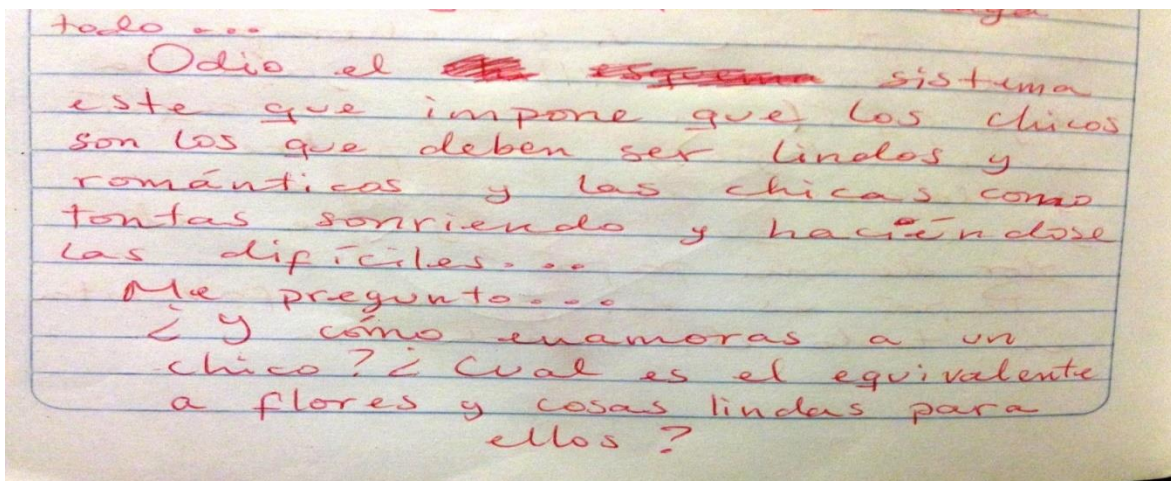 todo...
Odio el sistema
este que impone que los chicos
son los que deben ser lindos y
románticos y las chicas como
tontas sonriendo y haciéndose
las difíciles...
Me pregunto...
¿Y cómo enamoras a un
chico? ¿Cual es el equivalente
a flores y cosas lindas para
ellos?